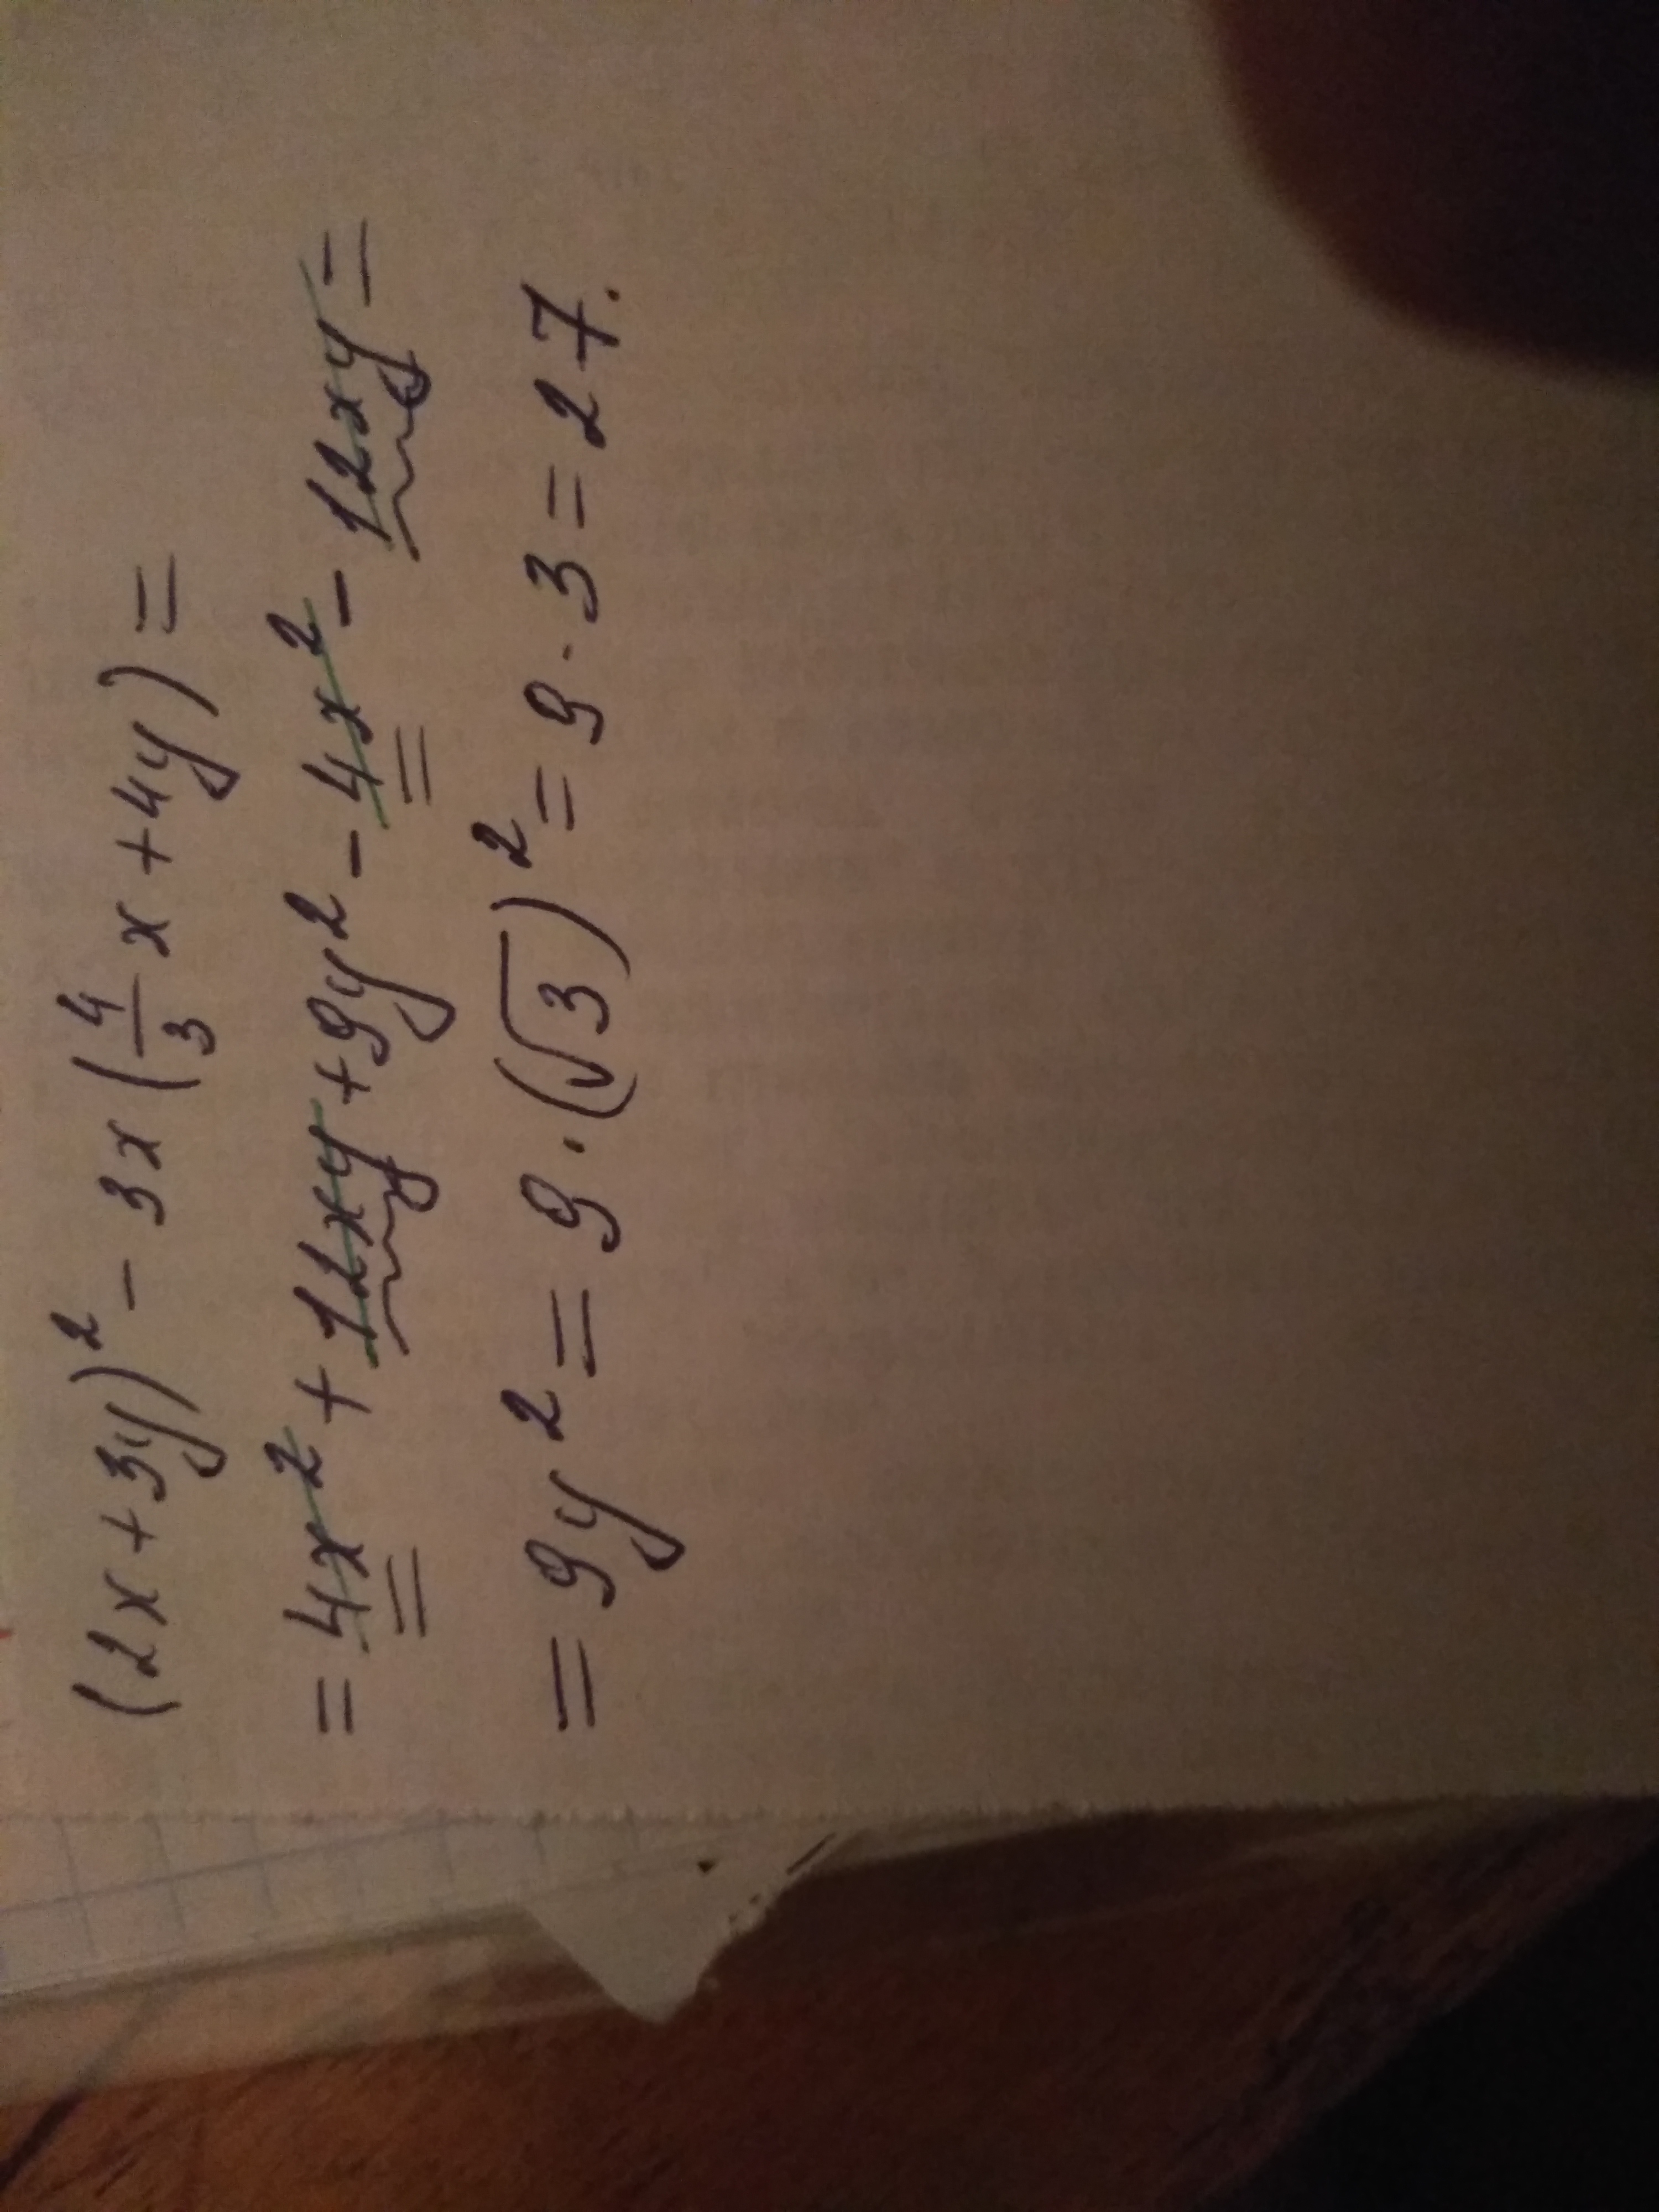 (2x+3y)² - 3x(4/3 x+4y) =
= 4x² + 12xy + 9y² - 4x² - 12xy =
= 9y² = 9·(√3)² = 9·3 = 27.